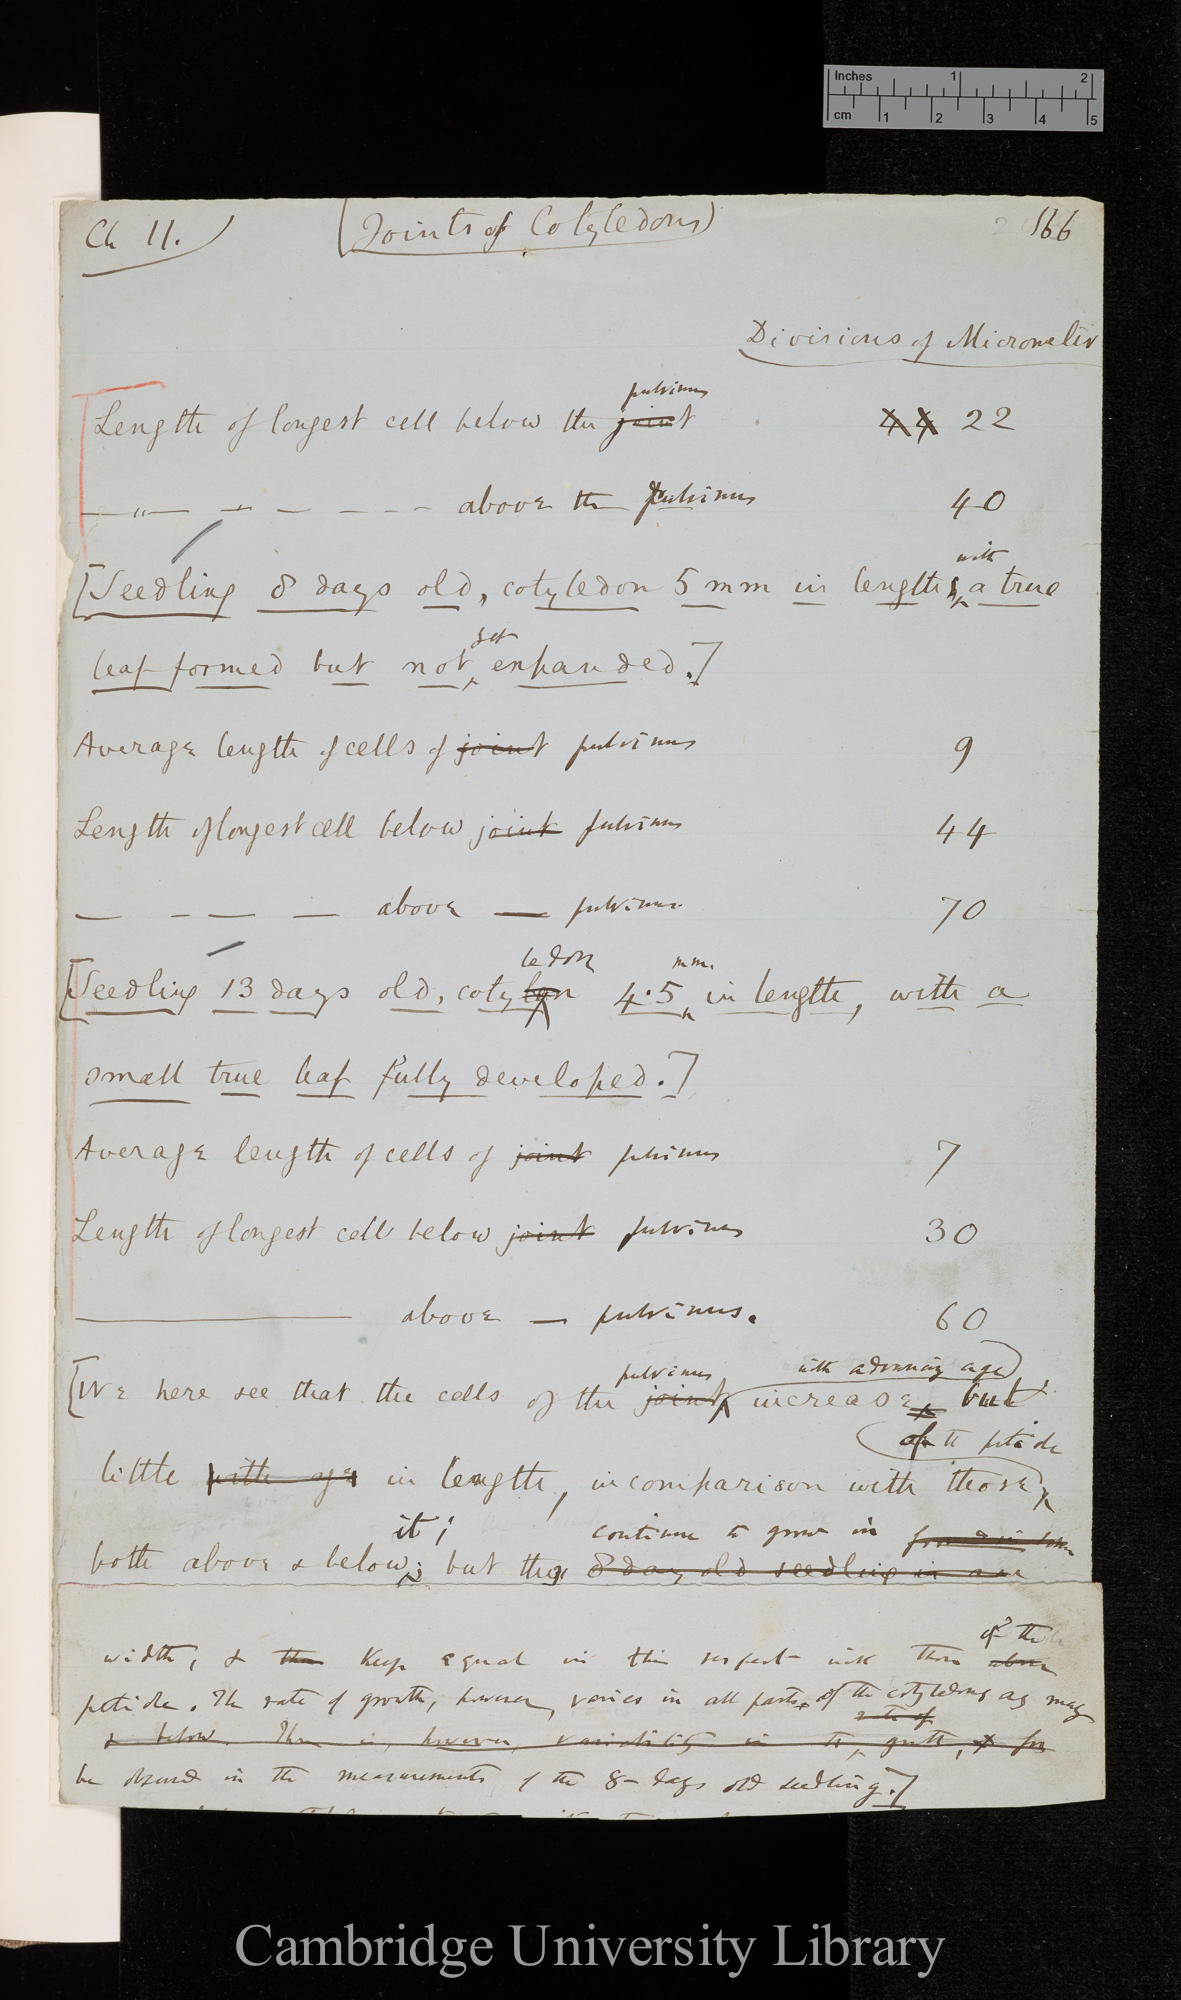 Inches 1 2
cm 1 2 3 4 5
Ch 11. (Joints of Cotyledons) 166
Divisions of Micrometer
pulvinus
Length of longest cell below the joint 44 22
— " — — — — — — above the pulvinus 40
with
[Seedling 8 days old, cotyledon 5 mm in length, a true
yet
leaf formed but not expanded.]
Average length of cells of joint pulvinus 9
Length of longest cell below joint pulvinus 44
— — — — above — pulvinus 70
ledon mm.
[Seedling 13 days old, cotyn 4.5 in length, with a
small true leaf fully developed.]
Average length of cells of joint plvinus 7
Length of longest cell below joint pulvinus 30
— above — pulvinus. 60
pulvinus with advancing age
[We here see that the cells of the joint increase but
of the petiole
little with age in length, in comparison with those
it; continue to grow in
both above & below; but they 8 day old seedling in
of the
width, & keep equal in this respect with those above
petiole. The rate of growth, however, varies in all parts of the cotyledons as may
rate of
& below. There is, however, variability in the growth, & for
be observed in the measurements of the 8-days old seedling.]
Cambridge University Library